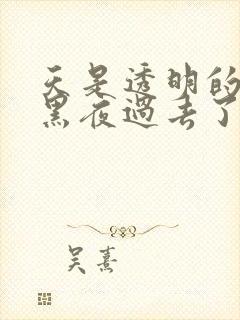 天是透明的
黑夜过去了
吴熹